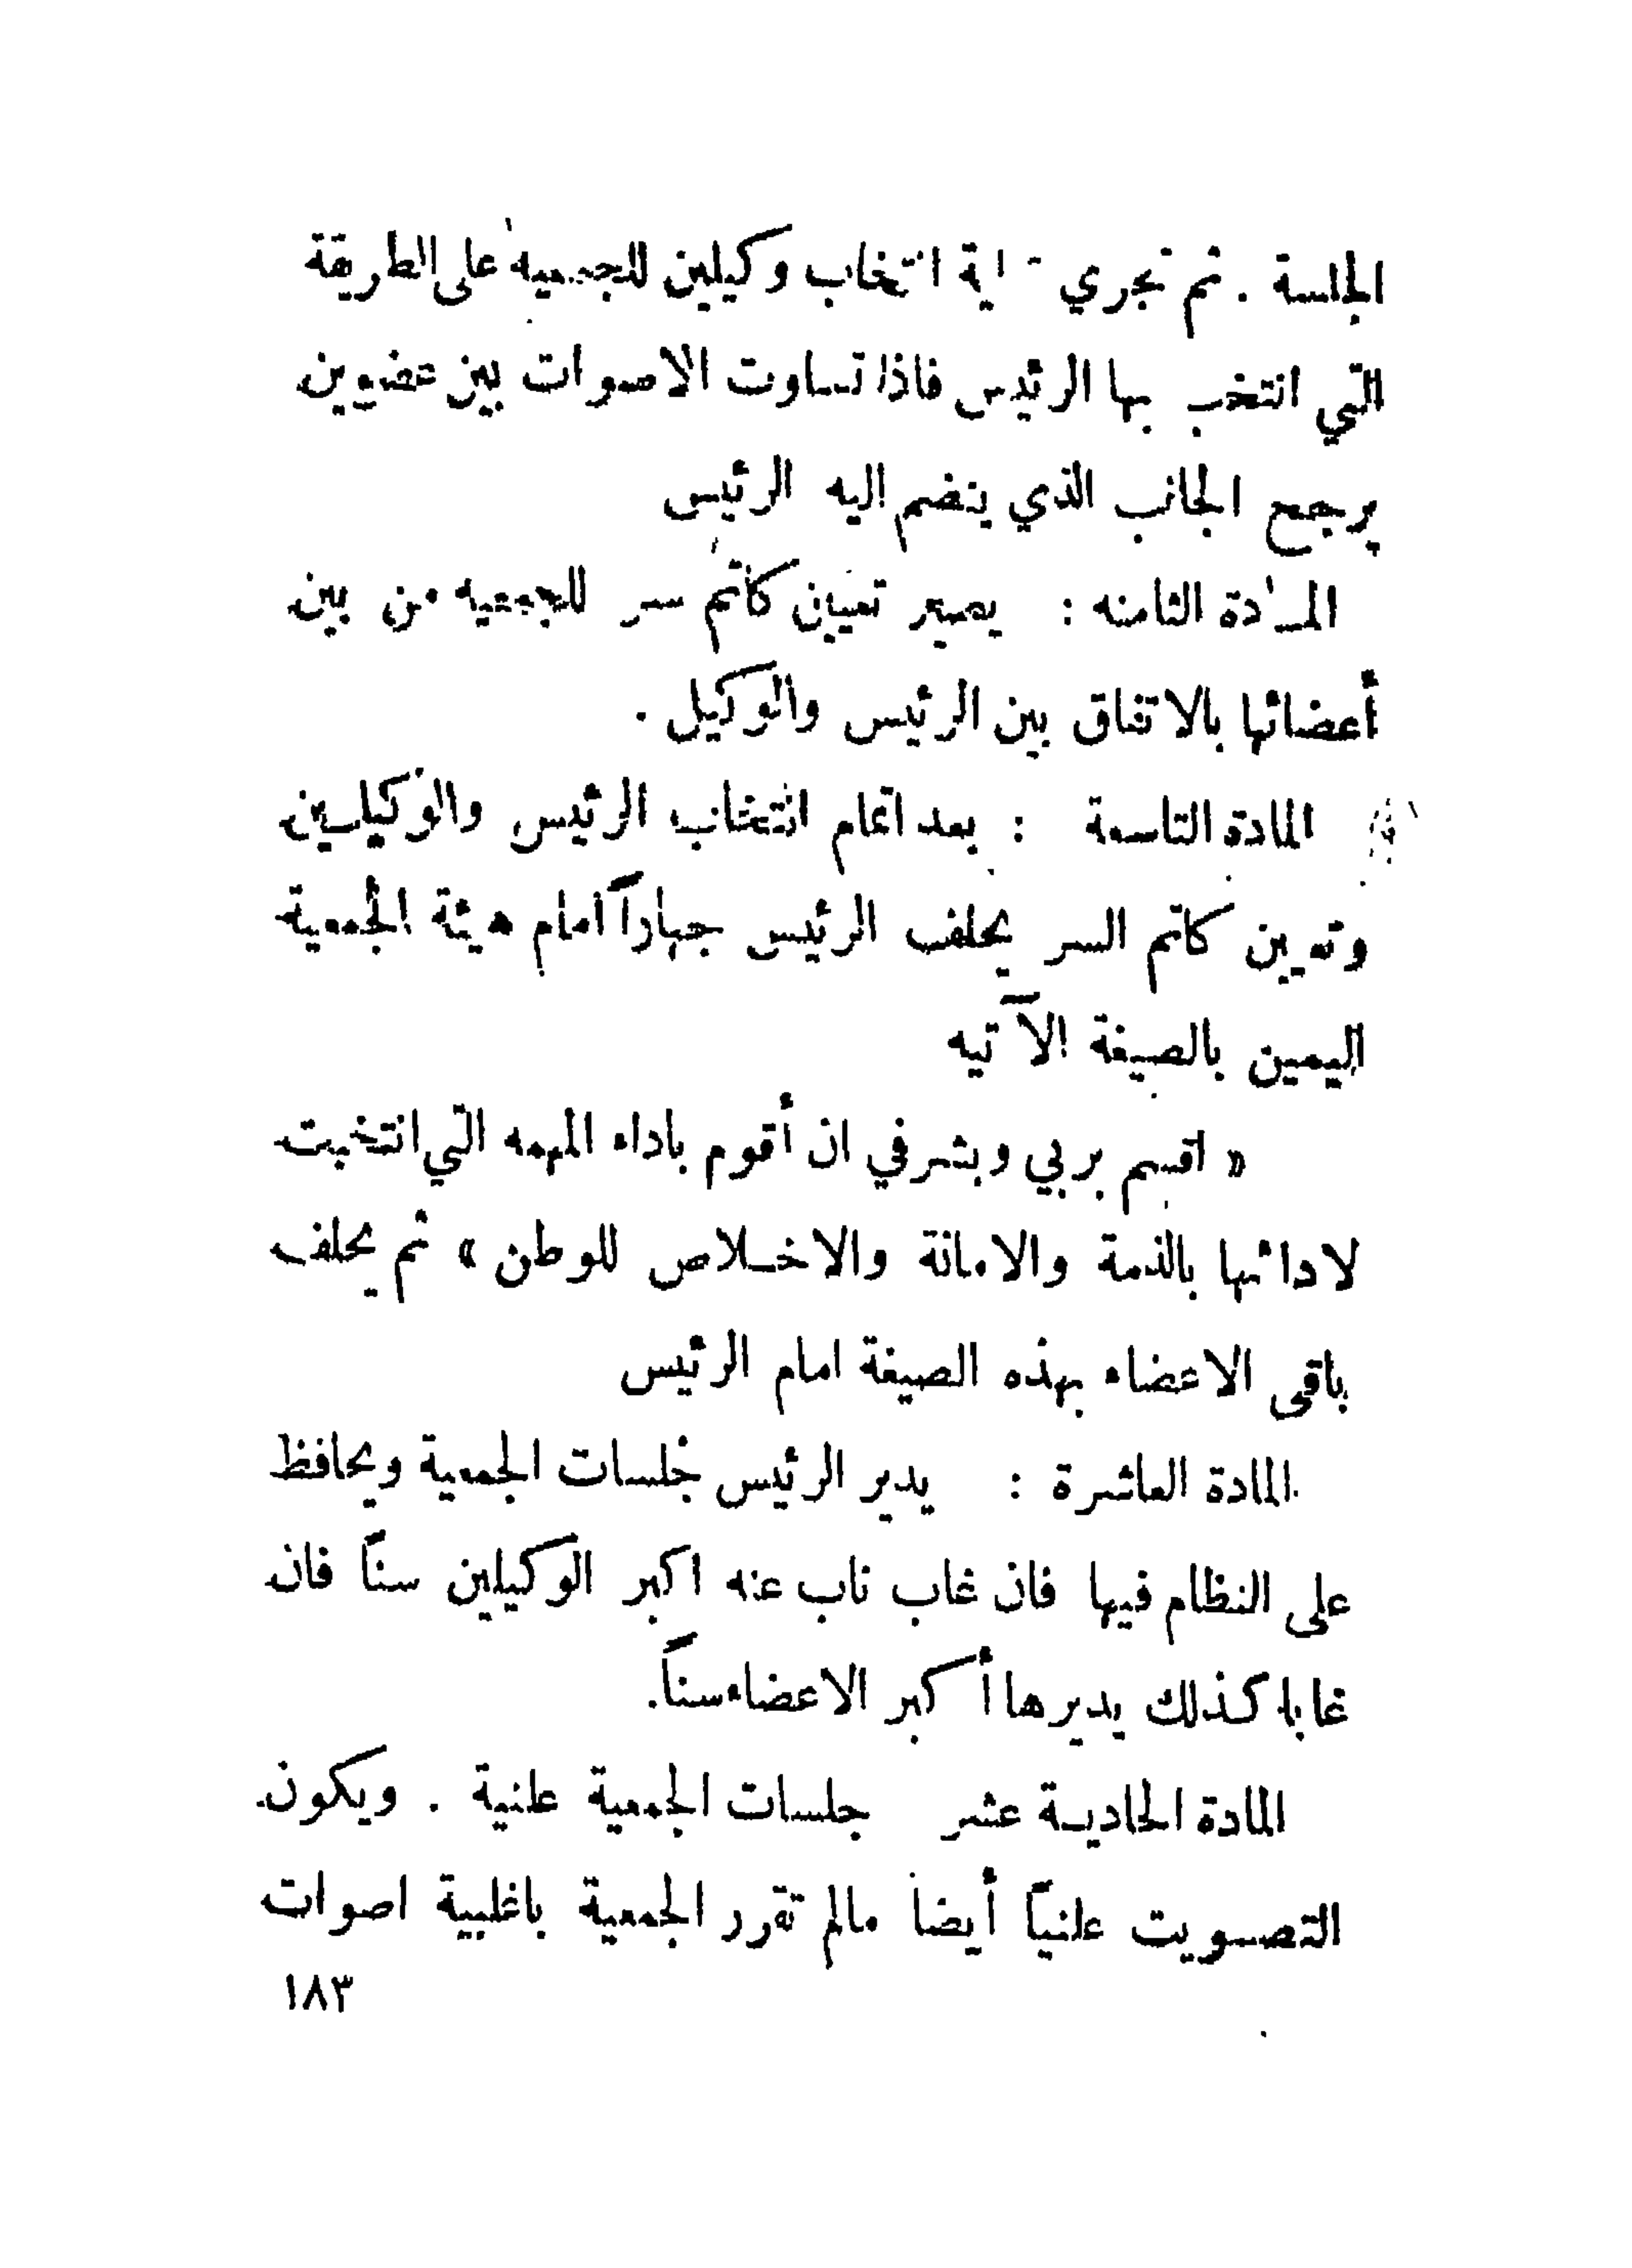 الجلسة . ثم تجري انتخاب وكيلين للجمعيه على الطريقة
التي انتخب بها الرئيس فاذا تساوت الاصوات بين عضوين
يرجح الجانب الذي ينضم اليه الرئيس
المادة الثامنه : يصير تعيين كاتم سر للجمعيه من بين
أعضائها بالاتفاق بين الرئيس والوكيل .
المادة التاسعة : بعد اتمام انتخاب الرئيس والوكيلين
وتعيين كاتم السر يحلف الرئيس جهاراً امام هيئة الجمعية
اليمين بالصيغة الآتيه
« اقسم بربي وبشرفي ان أقوم باداء المهمه التي انتخبت
لادائها بالذمة والامانة والاخلاص للوطن » ثم يحلف
باقى الاعضاء بهذه الصيغة امام الرئيس
المادة العاشرة : يدير الرئيس جلسات الجمعية ويحافظ
على النظام فيها فان غاب ناب عنه اكبر الوكيلين سناً فان
غابا كذلك يديرها أكبر الاعضاء سناً.
المادة الحادية عشر جلسات الجمعية علنية . ويكون
التصويت علنياً أيضا مالم تقرر الجمعية باغلبية اصوات
١٨٣